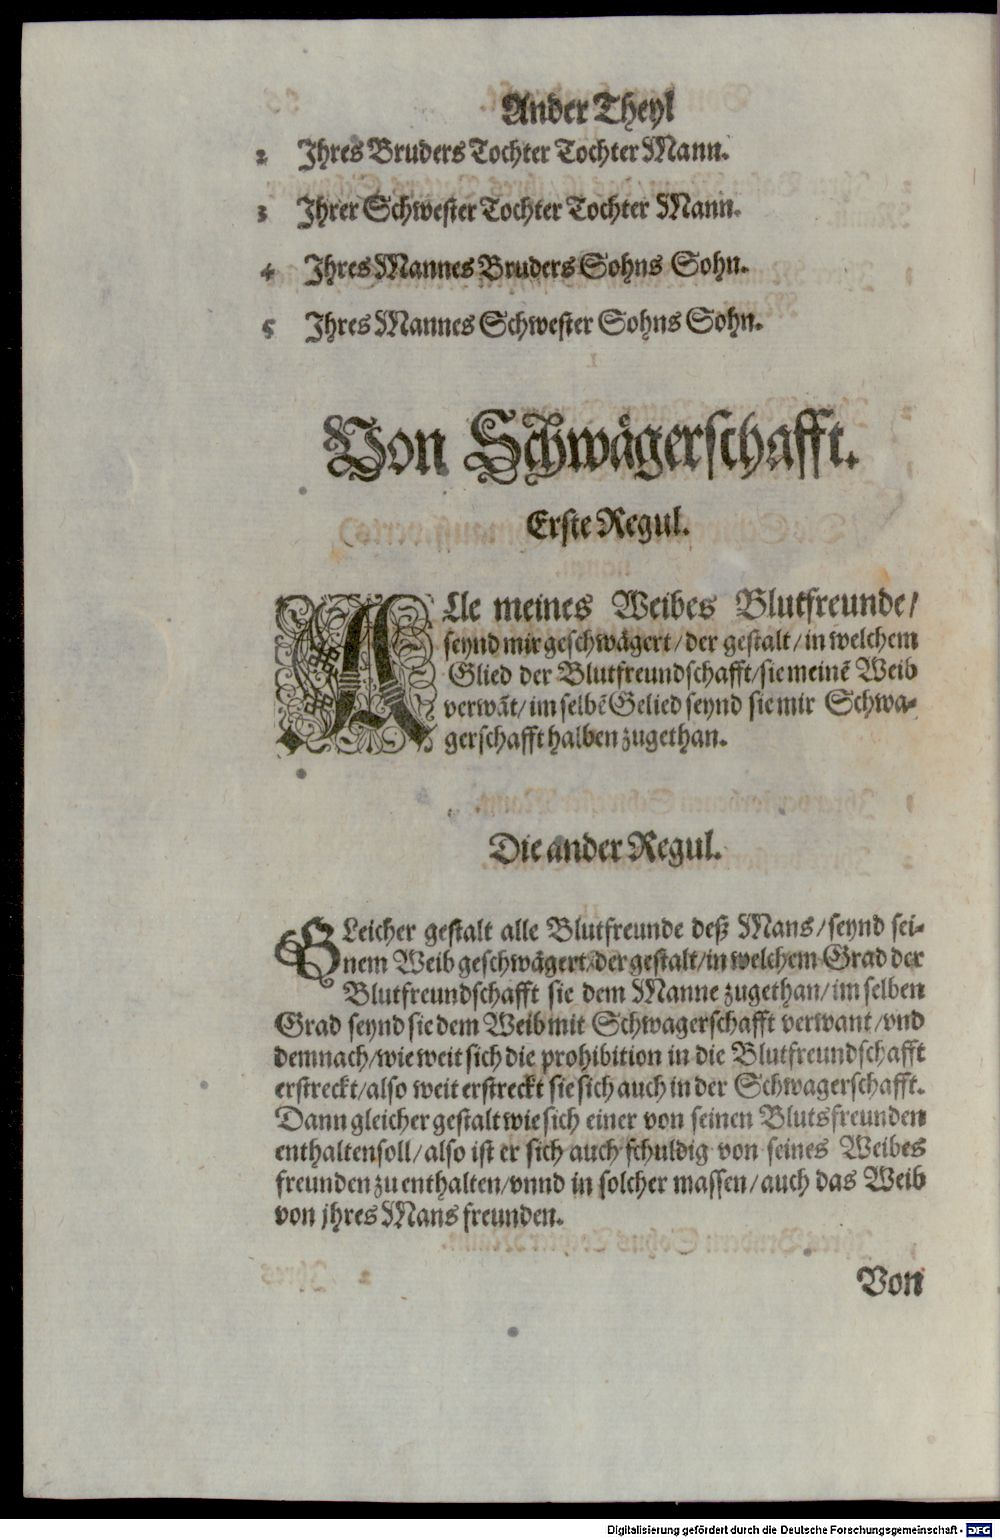 Ander Theyl
2 Jhres Bruders Tochter Tochter Mann.
3 Jhrer Schwester Tochter Tochter Mann.
4 Jhres Mannes Bruders Sohns Sohn.
5 Jhres Mannes Schwester Sohns Sohn.
Von Schwägerschafft.
Erste Regul.
ALle meines Weibes Blutfreunde/
seynd mir geschwägert/der gestalt/in welchem
Glied der Blutfreundschafft/sie meinẽ Weib
verwãt/im selbẽ Gelied seynd sie mir Schwa-
gerschafft halben zugethan.
Die ander Regul.
GLeicher gestalt alle Blutfreunde deß Mans/seynd sei-
nem Weib geschwägert/der gestalt/in welchem Grad der
Blutfreundschafft sie dem Manne zugethan/im selben
Grad seynd sie dem Weib mit Schwagerschafft verwant/vnd
demnach/wie weit sich die prohibition in die Blutfreundschafft
erstreckt/also weit erstreckt sie sich auch in der Schwagerschafft.
Dann gleicher gestalt wie sich einer von seinen Blutsfreunden
enthalten soll/also ist er sich auch schuldig von seines Weibes
freunden zu enthalten/vnnd in solcher massen/auch das Weib
von jhres Mans freunden.
Von
Digitalisierung gefördert durch die Deutsche Forschungsgemeinschaft - DFG